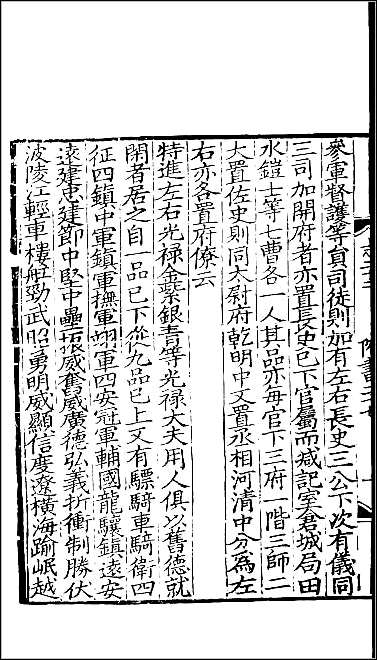 參軍督護等員司徒則加有左右長史三公下次有儀同
三司加開府者亦置長史已下官屬而減記室倉城局田
水鎧士等七曹各一人其品亦每官下三府一階三師二
大置佐史則同太尉府乾明中又置丞相河清中分為左
右亦各置府僚云
特進左右光祿金紫銀青等光祿大夫用人俱以舊德就
閑者居之自一品已下從九品已上又有驃騎車騎衛四
征四鎮中軍鎮軍撫軍翊軍四安冠軍輔國龍驤鎮遠安
遠建忠建節中堅中壘振威奮威廣德弘義折衝制勝伏
波陵江輕車樓船勁武昭勇明威顯信度遼橫海踰岷越